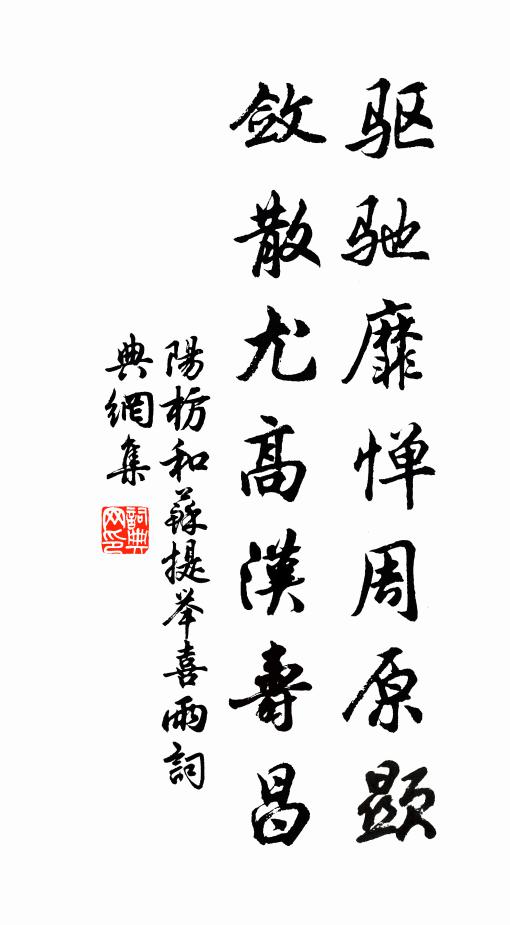 驱驰靡惮周原显
敛散尤高漢壽昌
陽枋和蘇提举喜雨詞
典網集
詞典網印